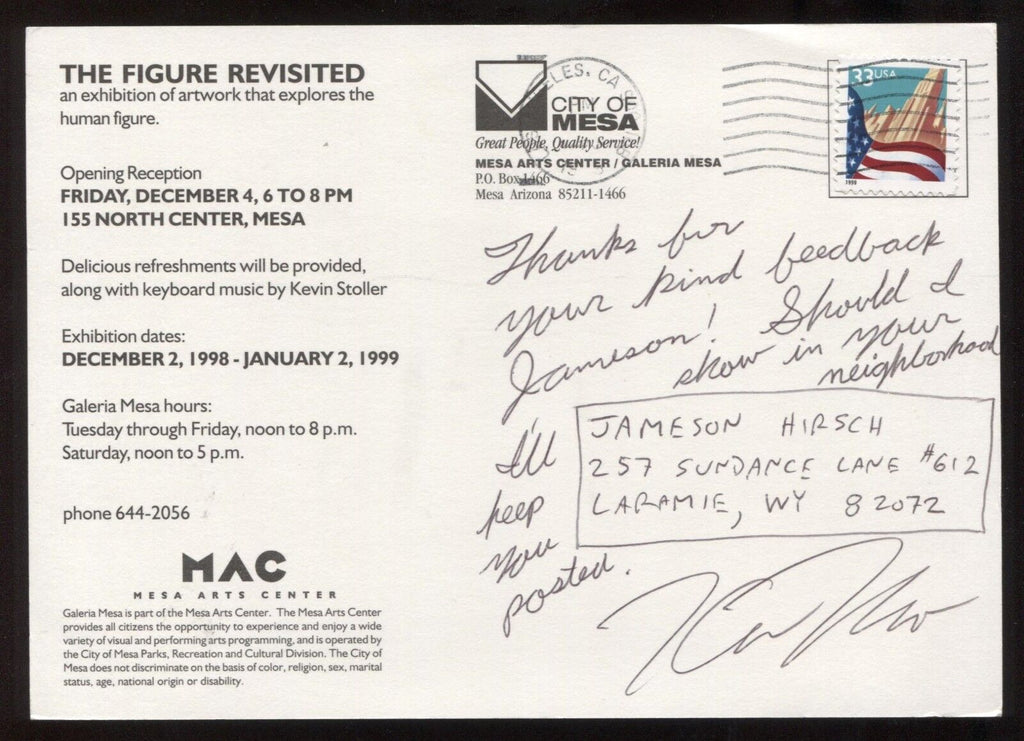 THE FIGURE REVISITED
an exhibition of artwork that explores the
human figure.
Opening Reception
FRIDAY, DECEMBER 4, 6 TO 8 PM
155 NORTH CENTER, MESA
Delicious refreshments will be provided,
along with keyboard music by Kevin Stoller
Exhibition dates:
DECEMBER 2, 1998 - JANUARY 2, 1999
Galeria Mesa hours:
Tuesday through Friday, noon to 8 p.m.
Saturday, noon to 5 p.m.
phone 644-2056
MAC
MESA ARTS CENTER
Galeria Mesa is part of the Mesa Arts Center. The Mesa Arts Center
provides all citizens the opportunity to experience and enjoy a wide
variety of visual and performing arts programming, and is operated by
the City of Mesa Parks, Recreation and Cultural Division. The City of
Mesa does not discriminate on the basis of color, religion, sex, marital
status, age, national origin or disability.
CITY OF
MESA
Great People, Quality Service!
MESA ARTS CENTER / GALERIA MESA
P.O. Box 1466
Mesa Arizona 85211-1466
ELES, CA
33 USA
1999
Thanks for
your kind feedback
Jameson! Should I
show in your
neighborhood
I'll
keep
you
posted.
JAMESON HIRSCH
257 SUNDANCE LANE #612
LARAMIE, WY 82072